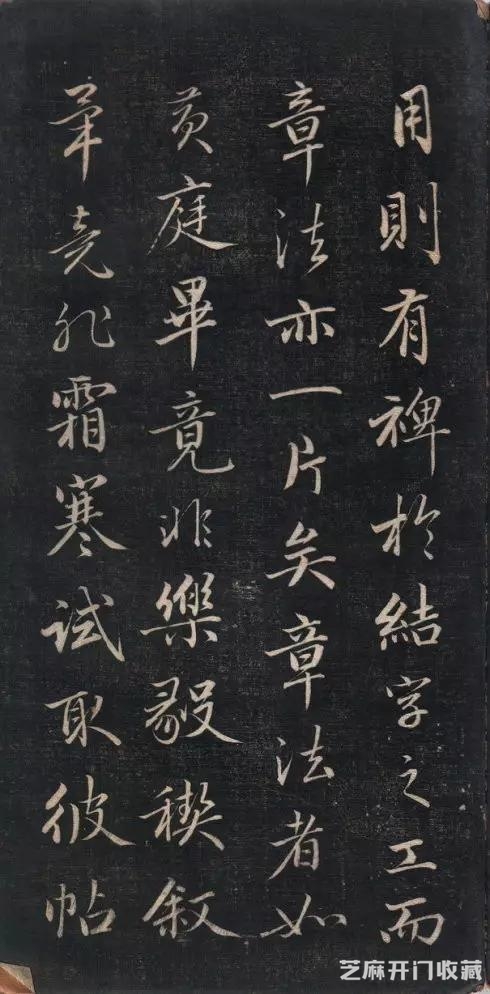 用則有裨於結字之工而
章法亦一片矣章法者如
黄庭畢竟非樂毅稧叙
畢竟非霜寒試取彼帖
芝麻开门收藏